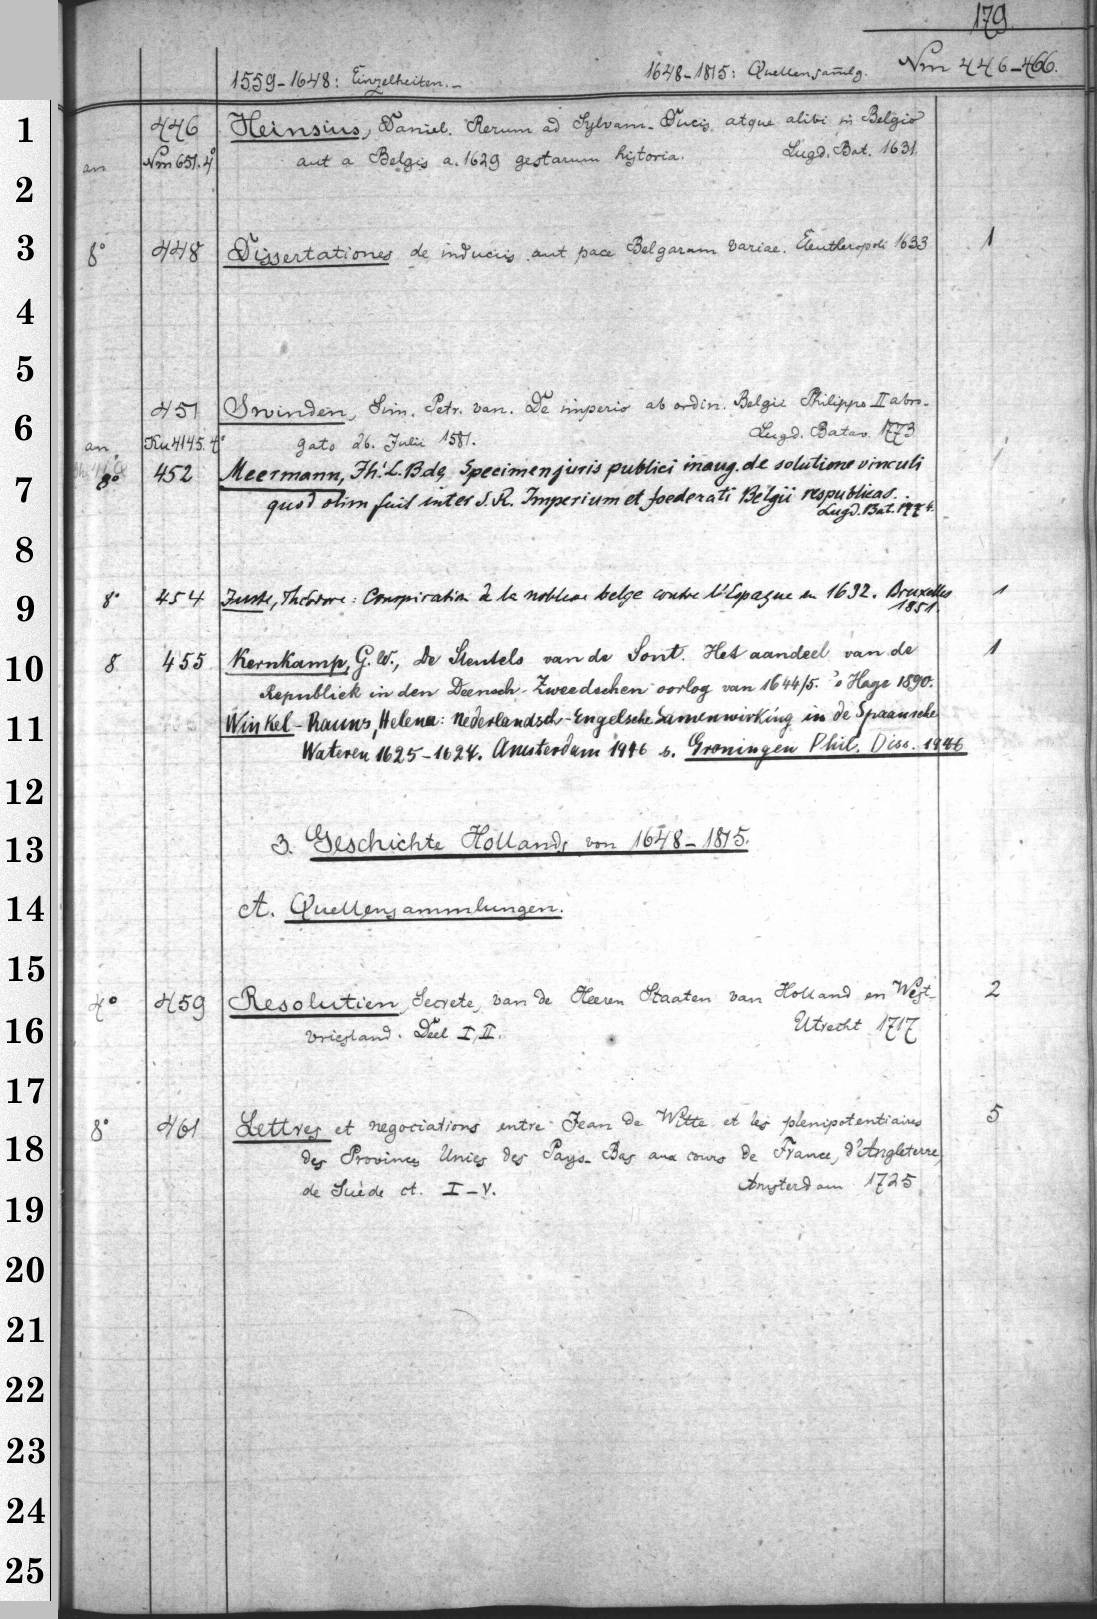 179.
1559-1648: Einzelheiten.- 1648-1815: Quellensamlg. Nm 446-466.
1
446 Heinsius, Daniel. Rerum ad Sylvam-Ducis atque alibi in Belgio
an Nm 651.4° aut a Belgis a. 1629 gestarum historia. Lugd. Bat. 1631
2
3
8° 448 Dissertationes de induciis aut pace Belgarum variae. Eleutheropoli 1633 1
4
5
451 Swinden, Sim. Petr. van. De imperio ab ordin. Belgii Philippo II abro-
6
an Ku 4145.4° gato 26. Julii 1581. Lugd. Batav. 1773
8° 452 Meermann, Th. L. B. de, Specimen juris publici inaug. de solutione vinculi
7
quod olim fuit inter S. R. Imperium et foederati Belgii respublicas.
Lugd. Bat. 1774.
8
8° 454 Juste, Théodore: Conspiration de la noblesse belge contre l'Espagne en 1632. Bruxelles
9
1851.
1
8 455 Kernkamp, G. W., De Sleutels van de Sont. Het aandeel van de 1
10
Republiek in den Deensch-Zweedschen oorlog van 1644/5. 's Hage 1890.
11
Winkel-Rauws, Helena: Nederlandsch-Engelsche Samenwirking in de Spaansche
Wateren 1625-1627. Amsterdam 1946 s. Groningen Phil. Diss. 1946
12
13
3. Geschichte Hollands von 1648-1815.
14
A. Quellensammlungen.
15
4° 459 Resolutien, Secrete, van de Heeren Staaten van Holland en West- 2
16
vriesland. Deel I, II. Utrecht 1717
17
8° 461 Lettres et negociations entre Jean de Witte et les plenipotentiaires 5
18
des Provinces Unies des Pays-Bas aux cours de France, d'Angleterre,
19
de Suède ct. I-V. Amsterdam 1725
20
21
22
23
24
25